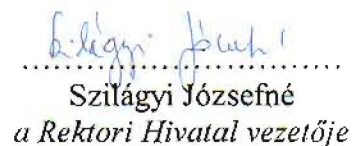 Szilágyi Józsefné
Szilágyi Józsefné
a Rektori Hivatal vezetője